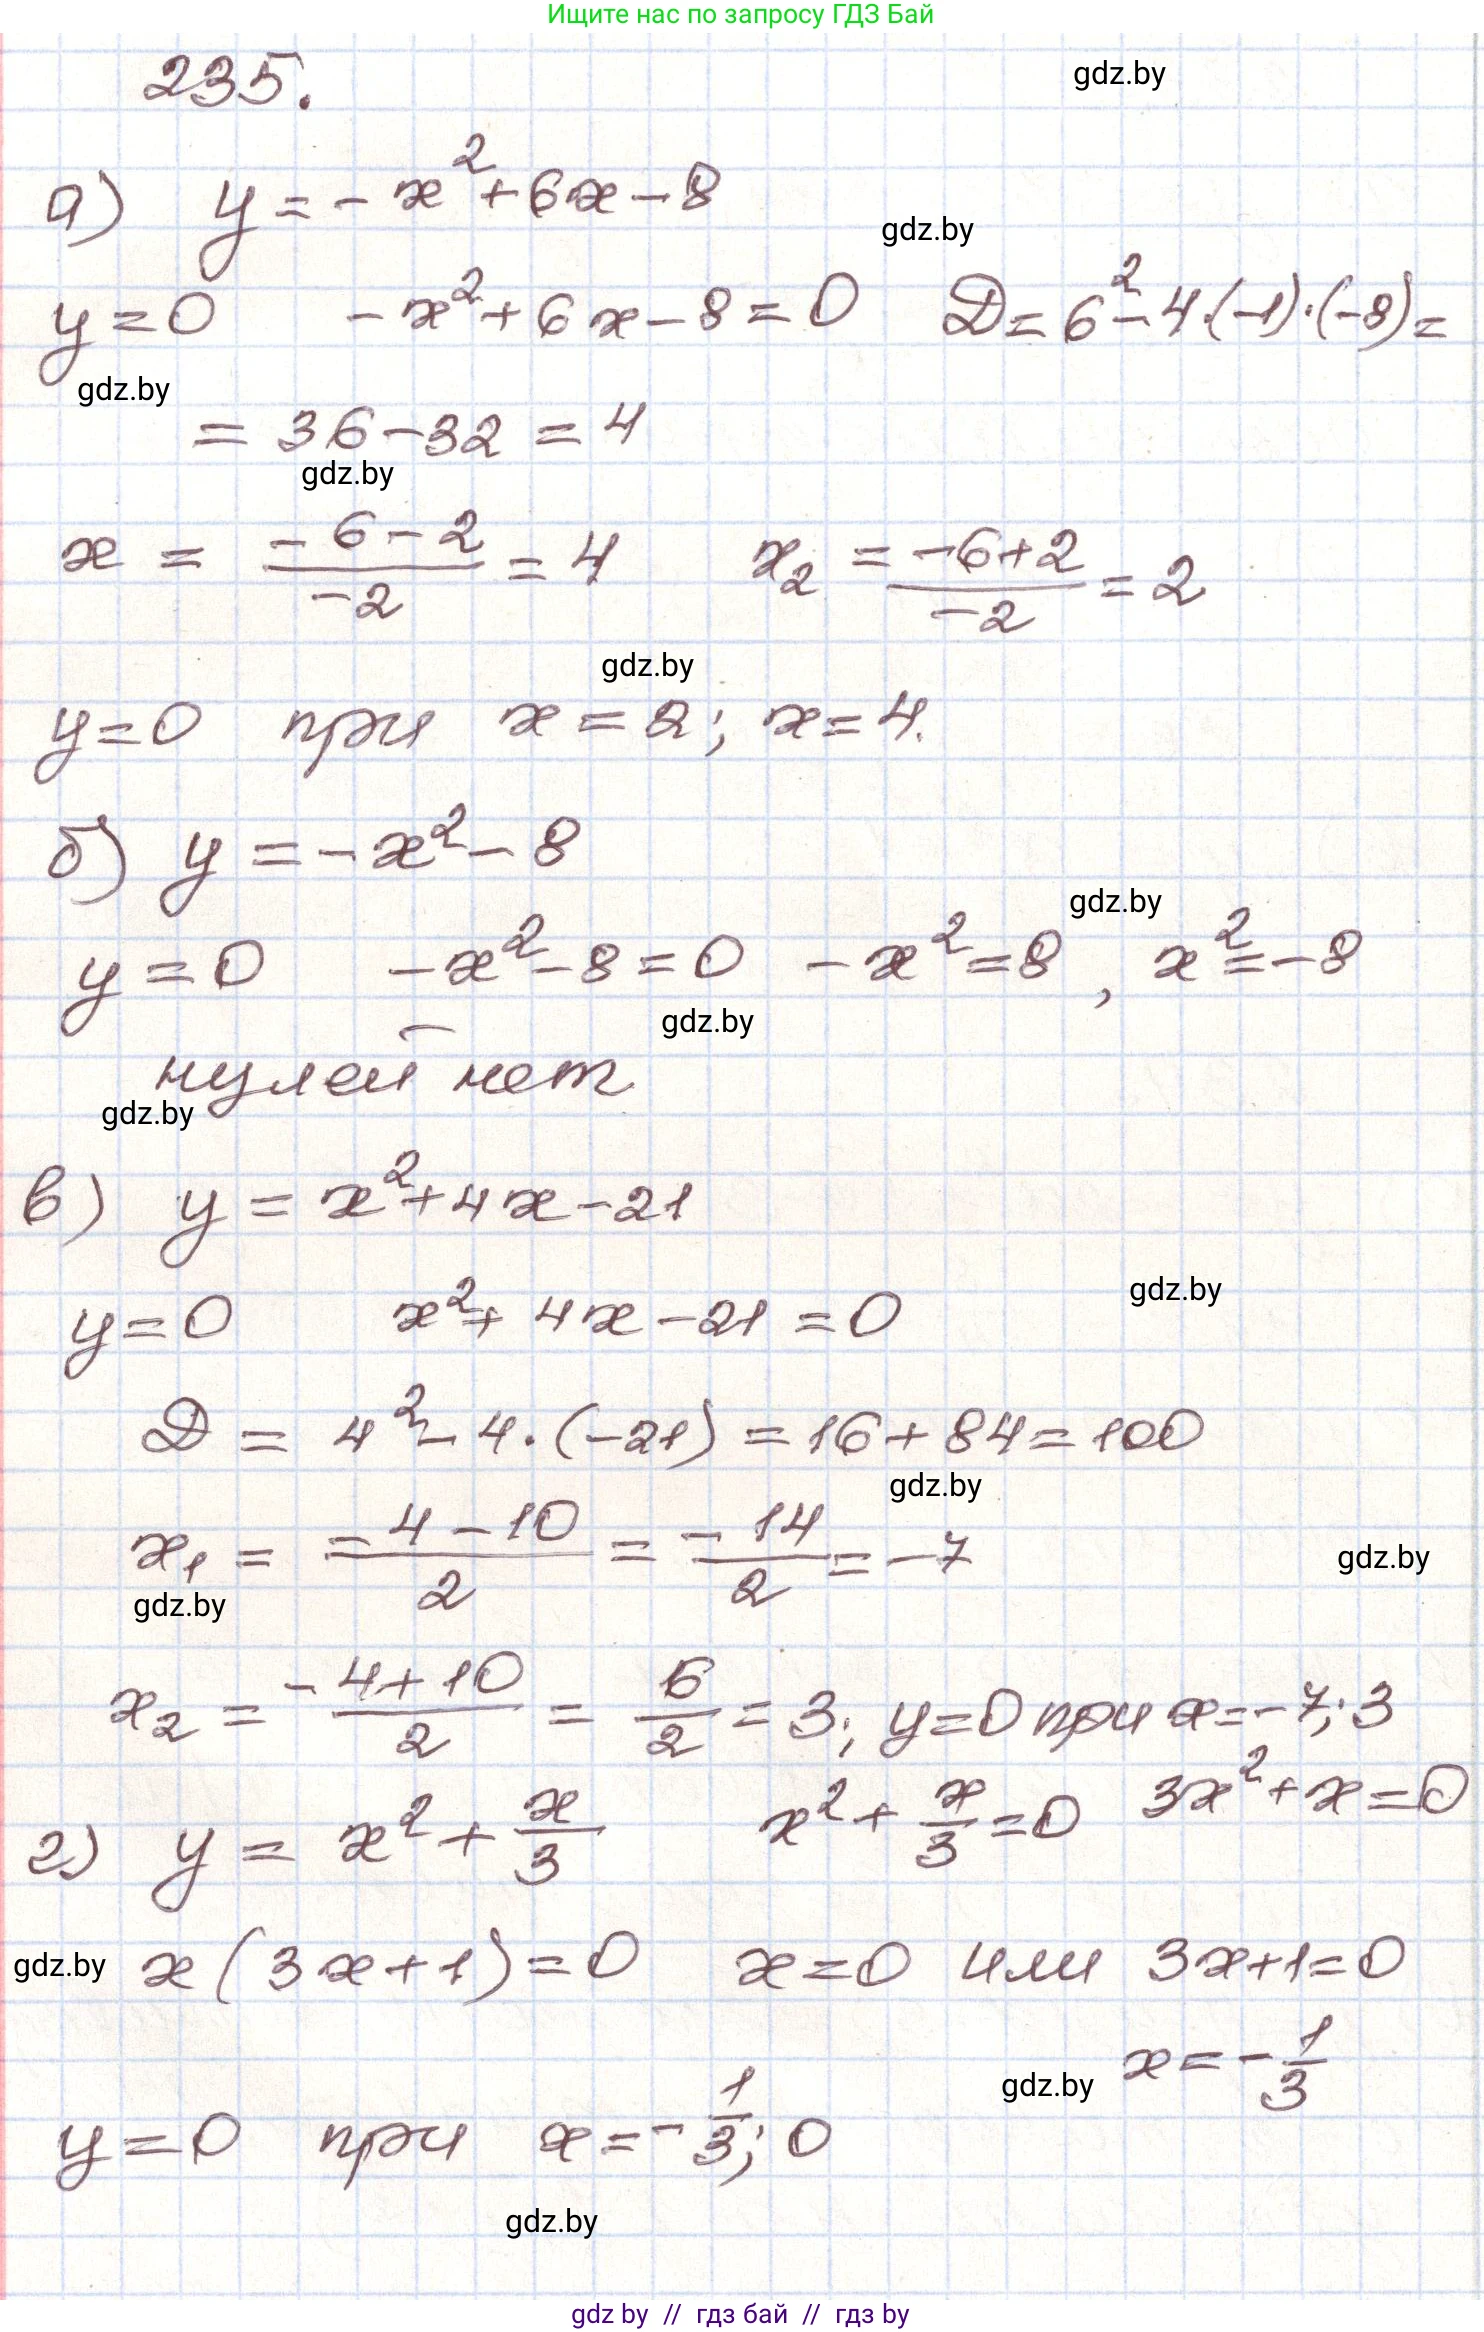 Ищите нас по запросу ГДЗ Бай
235.
gdz.by
а) y = -x² + 6x - 8
gdz.by
y = 0   -x² + 6x - 8 = 0   D = 6² - 4·(-1)·(-8) =
gdz.by
= 36 - 32 = 4
gdz.by
x = (-6 - 2)/(-2) = 4   x₂ = (-6 + 2)/(-2) = 2
gdz.by
y = 0 при x = 2; x = 4.
б) y = -x² - 8
gdz.by
y = 0   -x² - 8 = 0   -x² = 8, x² = -8
gdz.by
нулей нет
gdz.by
в) y = x² + 4x - 21
gdz.by
y = 0   x² + 4x - 21 = 0
D = 4² - 4·(-21) = 16 + 84 = 100
gdz.by
x₁ = (-4 - 10)/2 = -14/2 = -7
gdz.by
gdz.by
x₂ = (-4 + 10)/2 = 6/2 = 3; y = 0 при x = -7; 3
г) y = x² + x/3   x² + x/3 = 0   3x² + x = 0
gdz.by
x(3x + 1) = 0   x = 0 или 3x + 1 = 0
gdz.by
x = -1/3
y = 0 при x = -1/3; 0
gdz.by
gdz by // гдз бай // гдз by